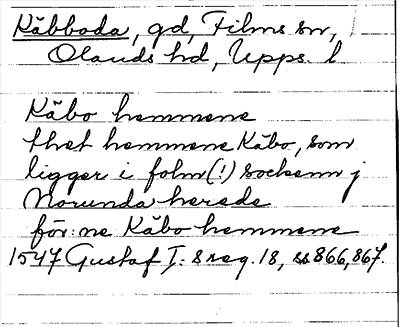 Kåbboda, gd, Films sn,
Olands hd, Upps. l
Kåbo hemmene
thet hemmene Kåbo, som
ligger i folm(!) sockenn j
Norunda herede
för:ne Kåbo hemmene
1547 Gustaf I:s reg. 18, ss 866, 867.